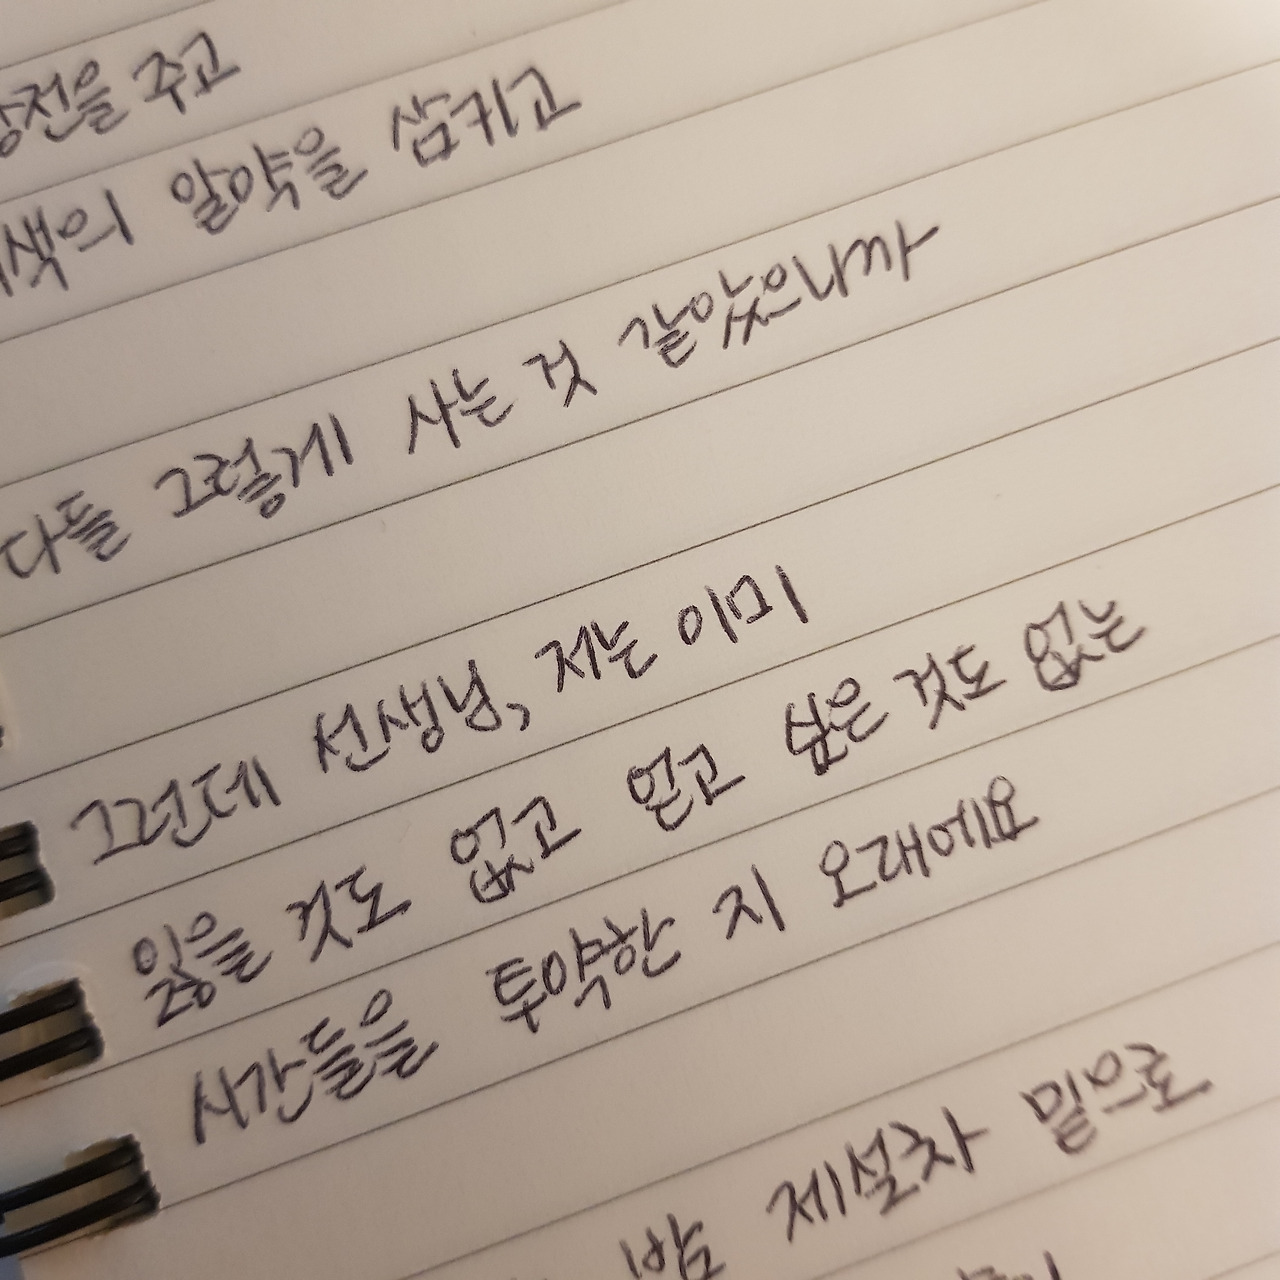 주고
알약을 삼키고
다들 그렇게 사는 것 같았으니까
그런데 선생님, 저는 이미
잃을 것도 없고 얻고 싶은 것도 없는
시간들을 투약한 지 오래에요
밤 제설차 밑으로